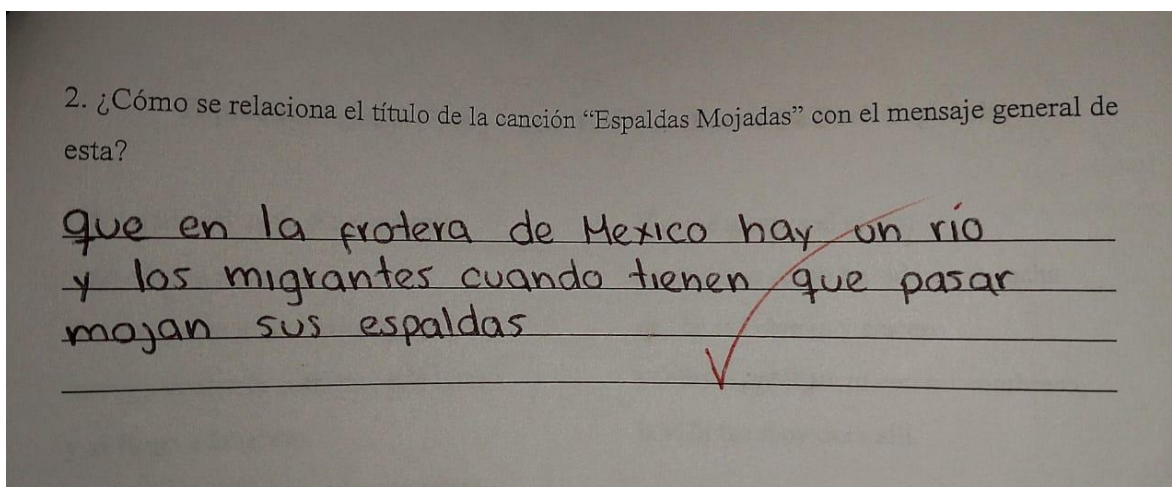 2. ¿Cómo se relaciona el título de la canción “Espaldas Mojadas” con el mensaje general de
esta?
que en la frotera de Mexico hay un río
y los migrantes cuando tienen que pasar
mojan sus espaldas